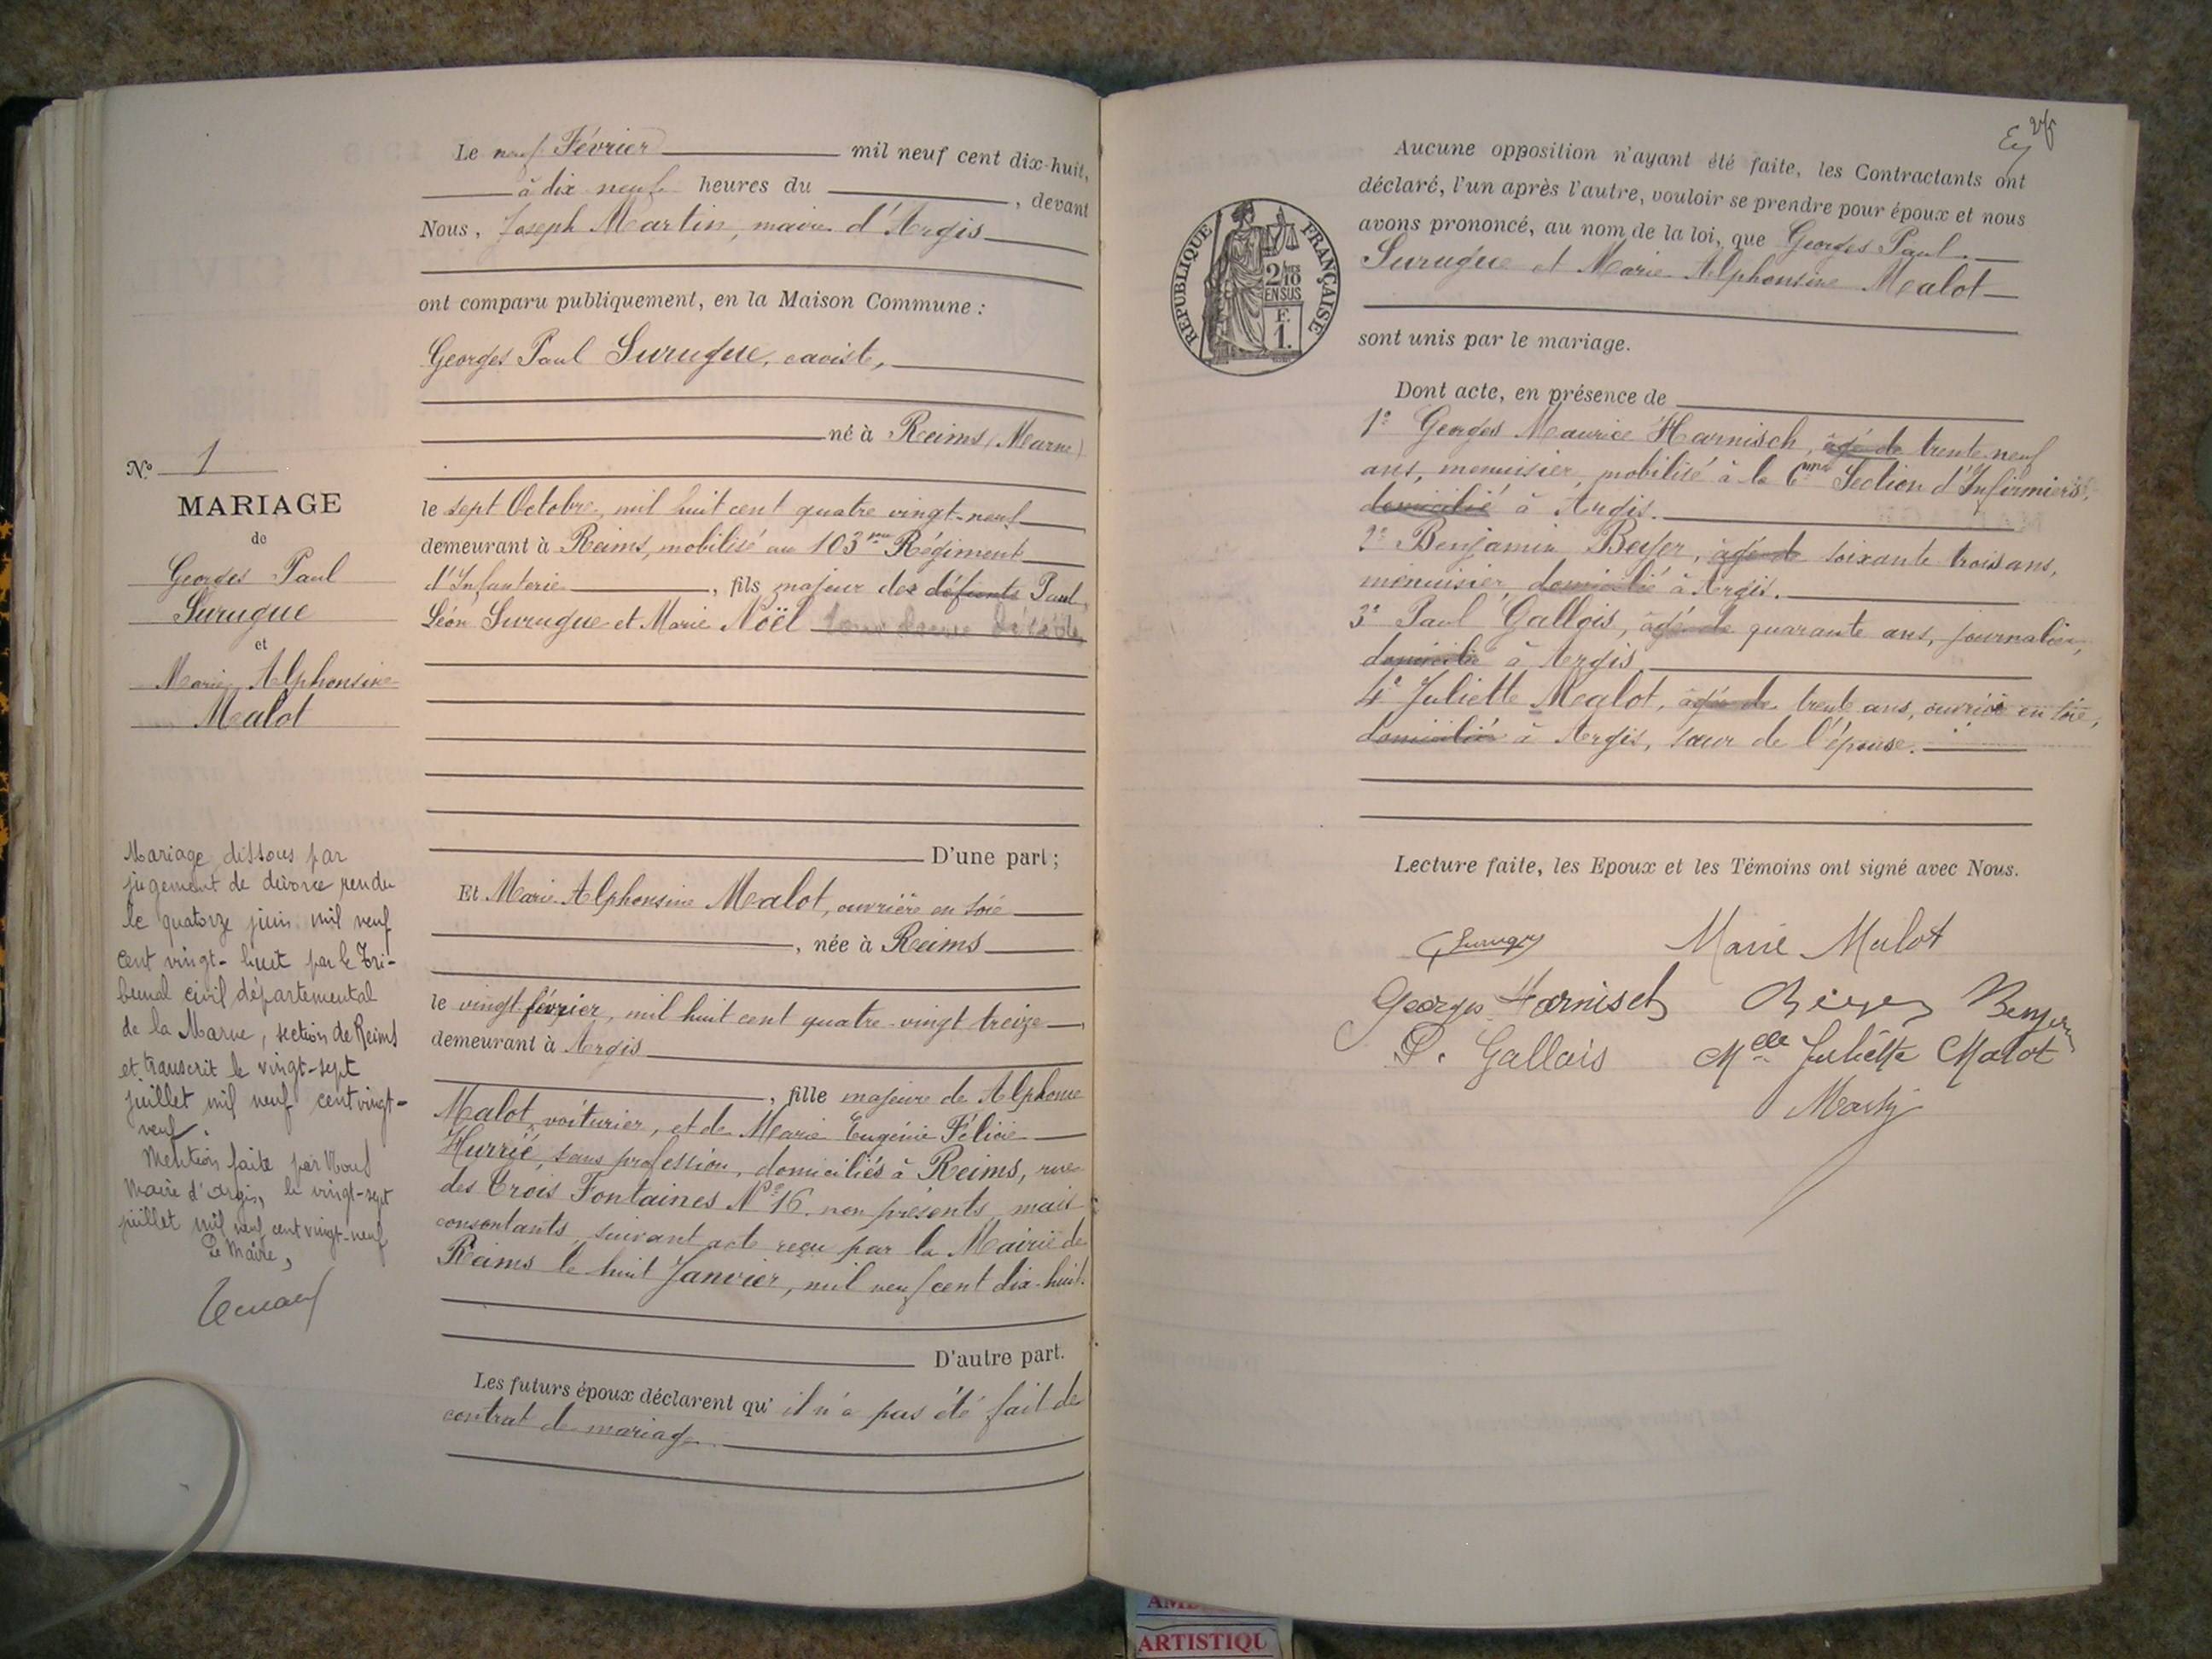 Le neuf Février mil neuf cent dix-huit,
à dix neuf heures du , devant
Nous, Joseph Martin, maire d'Argis
ont comparu publiquement, en la Maison Commune :
Georges Paul Surugue, caviste,
né à Reims (Marne)
le sept Octobre, mil huit cent quatre vingt-neuf
demeurant à Reims, mobilisé au 103me Régiment
d'Infanterie , fils majeur des défunts Paul
Léon Surugue et Marie Noël
N° 1
MARIAGE
de
Georges Paul
Surugue
et
Marie Alphonsine
Malot
D'une part;
Et Marie Alphonsine Malot, ouvrière en soie
, née à Reims
le vingt février, mil huit cent quatre-vingt treize,
demeurant à Argis
, fille majeure de Alphonse
Malot, voiturier, et de Marie Eugénie Félicie
Hurrié, sans profession, domiciliés à Reims, rue
des Trois Fontaines N° 16. non présents, mais
consentants, suivant acte reçu par la Mairie de
Reims le huit Janvier, mil neuf cent dix-huit.
D'autre part.
Les futurs époux déclarent qu' il n'a pas été fait de
contrat de mariage.
Mariage dissous par
jugement de divorce rendu
le quatorze juin mil neuf
cent vingt-huit par le Tri-
bunal civil départemental
de la Marne, section de Reims
et transcrit le vingt-sept
juillet mil neuf cent vingt-
neuf.
Mention faite par Nous
Maire d'Argis, le vingt-sept
juillet mil neuf cent vingt-neuf
Le Maire,
Aucune opposition n'ayant été faite, les Contractants ont
déclaré, l'un après l'autre, vouloir se prendre pour époux et nous
avons prononcé, au nom de la loi, que Georges Paul
Surugue et Marie Alphonsine Malot
sont unis par le mariage.
RÉPUBLIQUE FRANÇAISE
2/10
EN SUS
F.
1.
Dont acte, en présence de
1° Georges Maurice Harnisch, âgé de trente-neuf
ans, menuisier, mobilisé à la 6me Section d'Infirmiers,
domicilié à Argis.
2° Benjamin Beyer, âgé de soixante trois ans,
menuisier, domicilié à Argis.
3° Paul Gallois, âgé de quarante ans, journalier,
domicilié à Argis
4° Juliette Malot, âgée de trente ans, ouvrière en soie,
domiciliée à Argis, sœur de l'épouse.
Lecture faite, les Epoux et les Témoins ont signé avec Nous.
Surugue Marie Malot
Georges Harnisch Beyer Benjamin
P. Gallois Melle Juliette Malot
Martin
ARTISTIQU